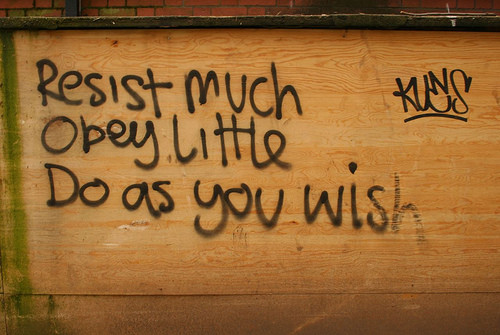 Resist much
Obey Little
Do as you wish
KUENS